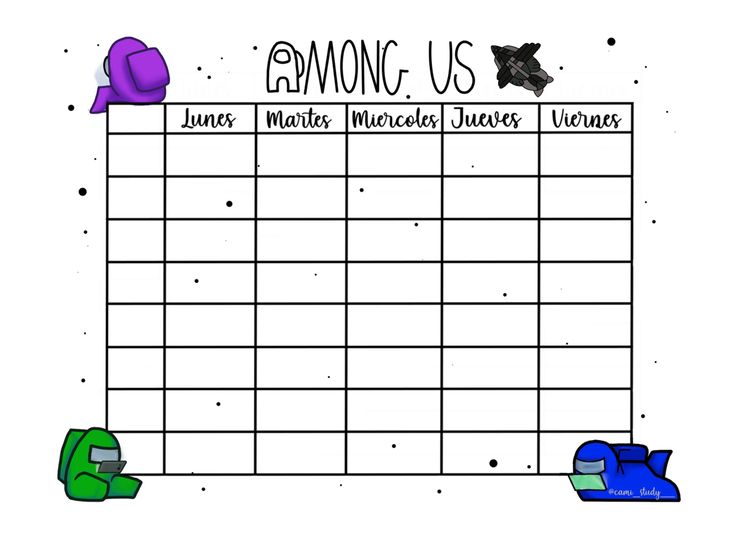 AMONG US
Lunes Martes Miercoles Jueves Viernes
@cami_study___